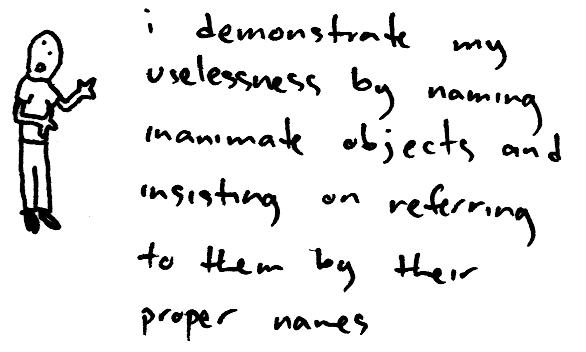 i demonstrate my
uselessness by naming
inanimate objects and
insisting on referring
to them by their
proper names